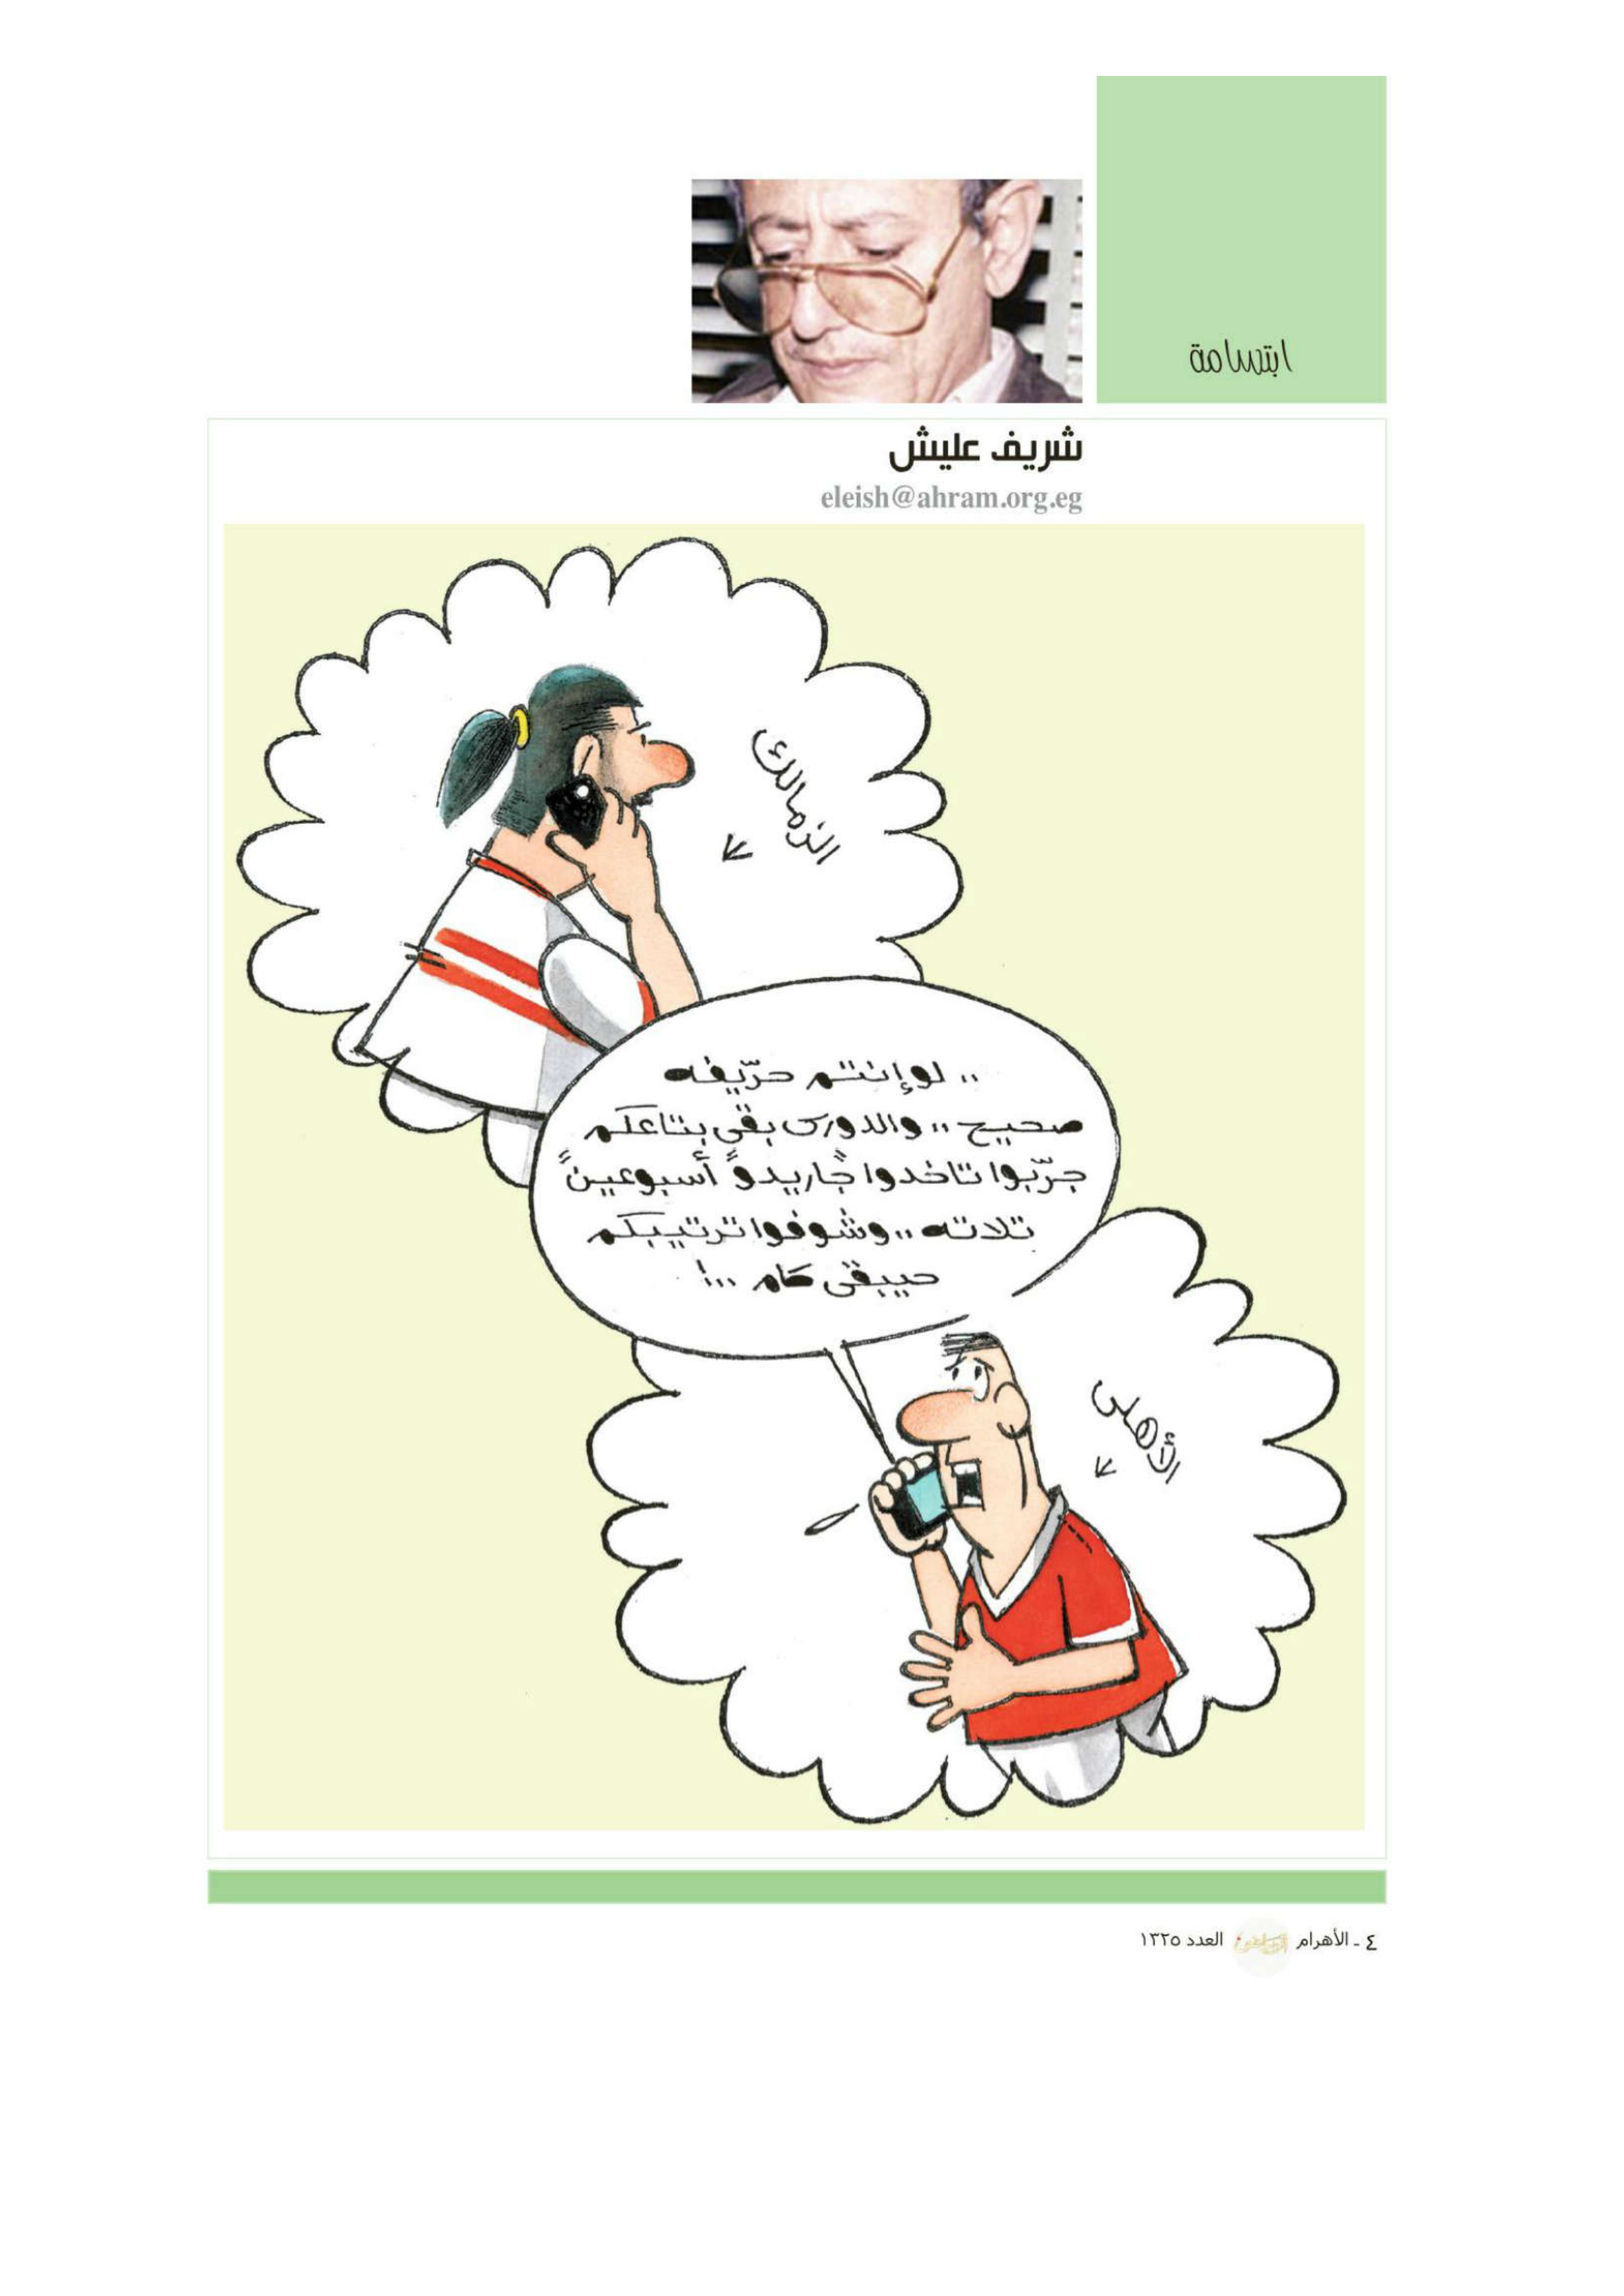 ابتسامة
شريف عليش
eleish@ahram.org.eg
الزمالك
.. لو إنتم حرّيفه
صحيح .. والدورى بقى بتاعكم
جرّبوا تاخدوا "جاريدو" أسبوعين
تلاته .. وشوفوا ترتيبكم
حيبقى كام ...!
الأهلى
٤ ـ الأهرام الرياضى العدد ١٣٢٥